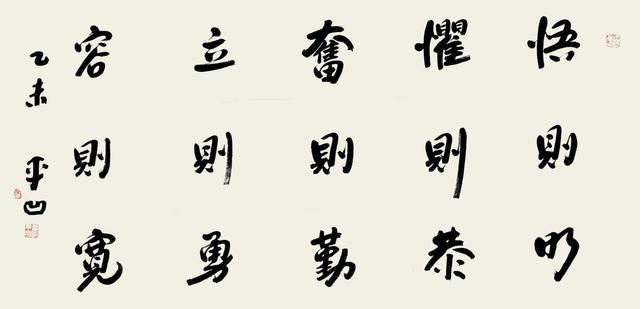 悟則明
懼則恭
奮則勤
立則勇
容則寬
乙未 平凹